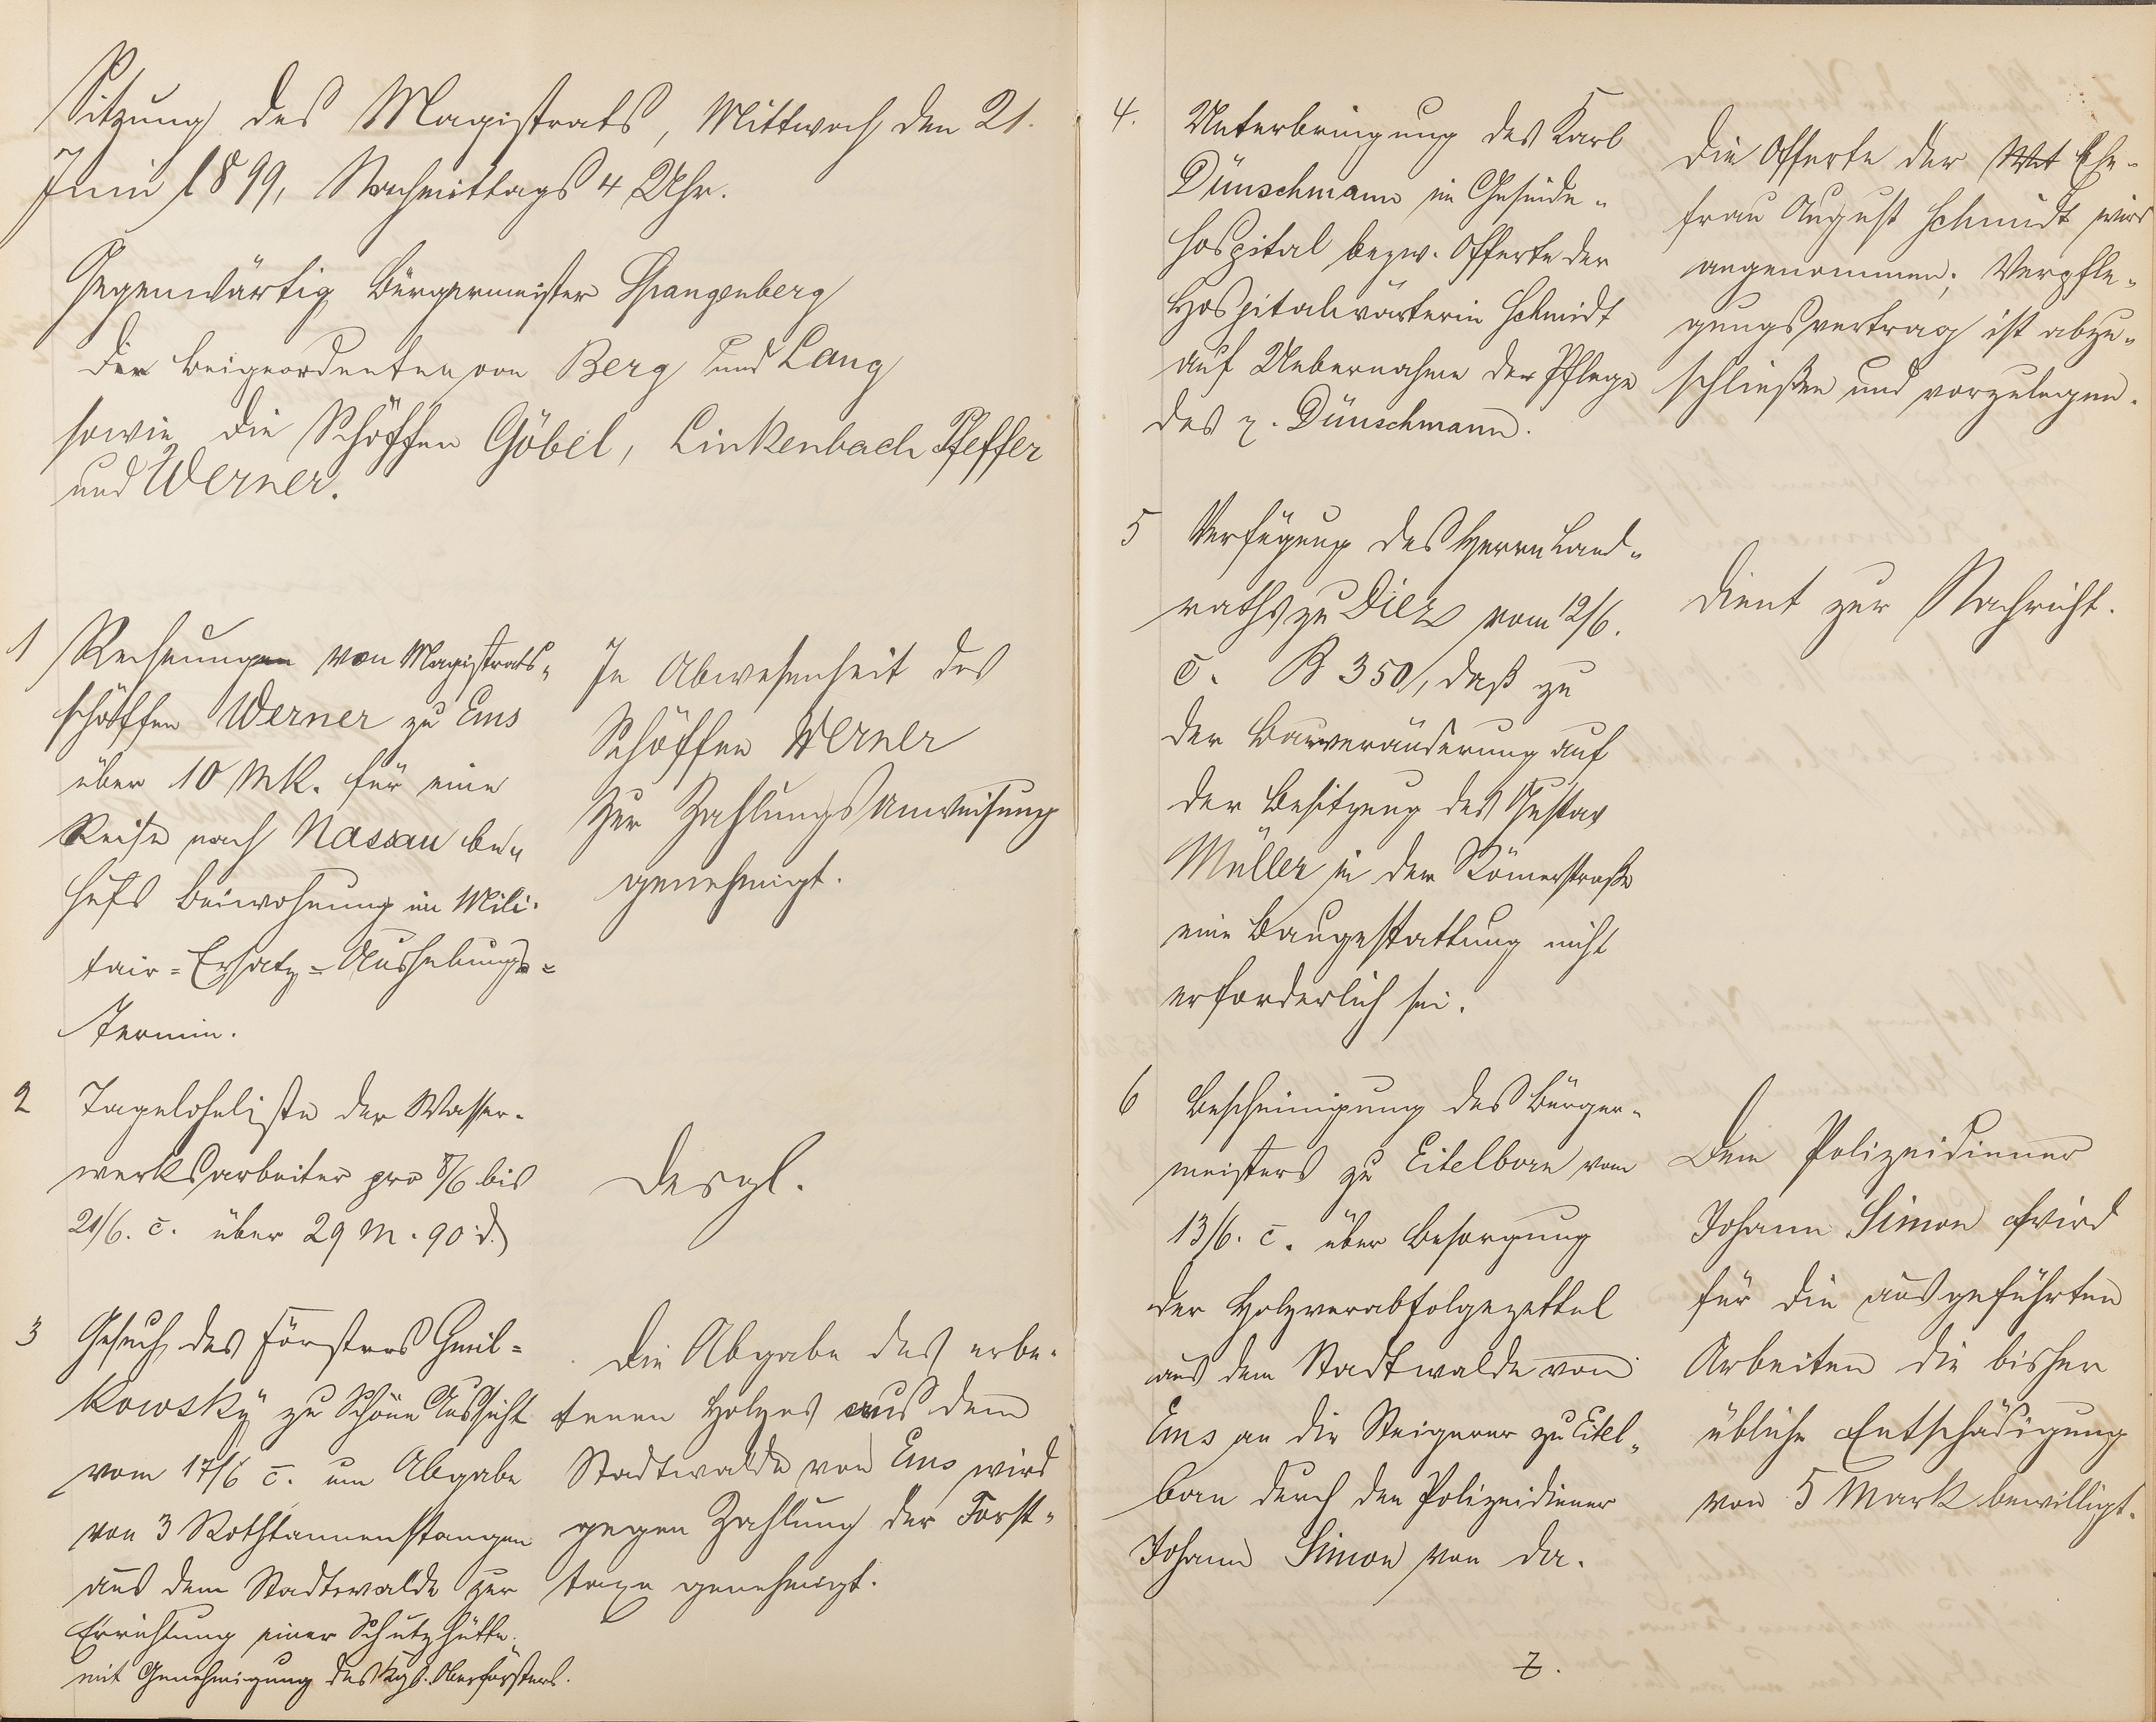 Sitzung des Magistrats, Mittwoch, den 21.
Juni 1899, Nachmittags 4 Uhr.
Gegenwärtig Bürgermeister Spangenberg
die Beigeordneten von Berg und Lang
sowie die Schöffen Göbel, Linkenbach Pfeffer
und Werner.
1 Rechnungen von Magistrats-
schöffen Werner zu Ems
über 10 Mk. für eine
Reise nach Nassau be-
hufs Beiwohnung im Mili-
tair-Ersatz-Aushebungs-
Termin.
In Abwesenheit des
Schöffen Werner
Zur Zahlungsanweisung
genehmigt.
2 Tagelohnliste der Wasser-
werksarbeiter pro 8/6 bis
21/6. c. über 29 M. 90 d.
desgl.
3 Gesuch des Försters Gmil-
kowsky zu Schöne Aussicht
vom 17/6 c. um Abgabe
von 3 Rothtannenstangen
aus dem Stadtwalde zur
Errichtung einer Schutzhütte.
mit Genehmigung des Kgl. Oberförsters.
Die Abgabe des erbe-
tenen Holzes aus dem
Stadtwalde von Ems wird
gegen Zahlung der Forst-
taxe genehmigt.
4. Unterbringung des Karl
Dünschmann im Gesinde-
hospital bezw. Offerte der
Hospitalwärterin Schmidt
auf Uebernahme der Pflege
des p. Dünschmann.
Die Offerte der Wet Ehe-
frau August Schmidt wird
angenommen; Verpfle-
gungsvertrag ist abzu-
schließen und vorzulegen.
5 Verfügung des Herrn Land-
raths zu Diez vom 12/6.
c. B 350, daß zu
der Bauveränderung auf
der Besitzung des Gustav
Müller in der Römerstraße
eine Baugestattung nicht
erforderlich sei.
Dient zur Nachricht.
6 Bescheinigung des Bürger-
meisters zu Eitelborn vom
13/6. c. über Besorgung
der Holzverabfolgezettel
aus dem Stadtwalde von
Ems an die Steigerer zu Eitel-
born durch den Polizeidiener
Johann Simon von da.
Dem Polizeidiener
Johann Simon wird
für die ausgeführten
Arbeiten die bisher
übliche Entschädigung
von 5 Mark bewilligt.
7.